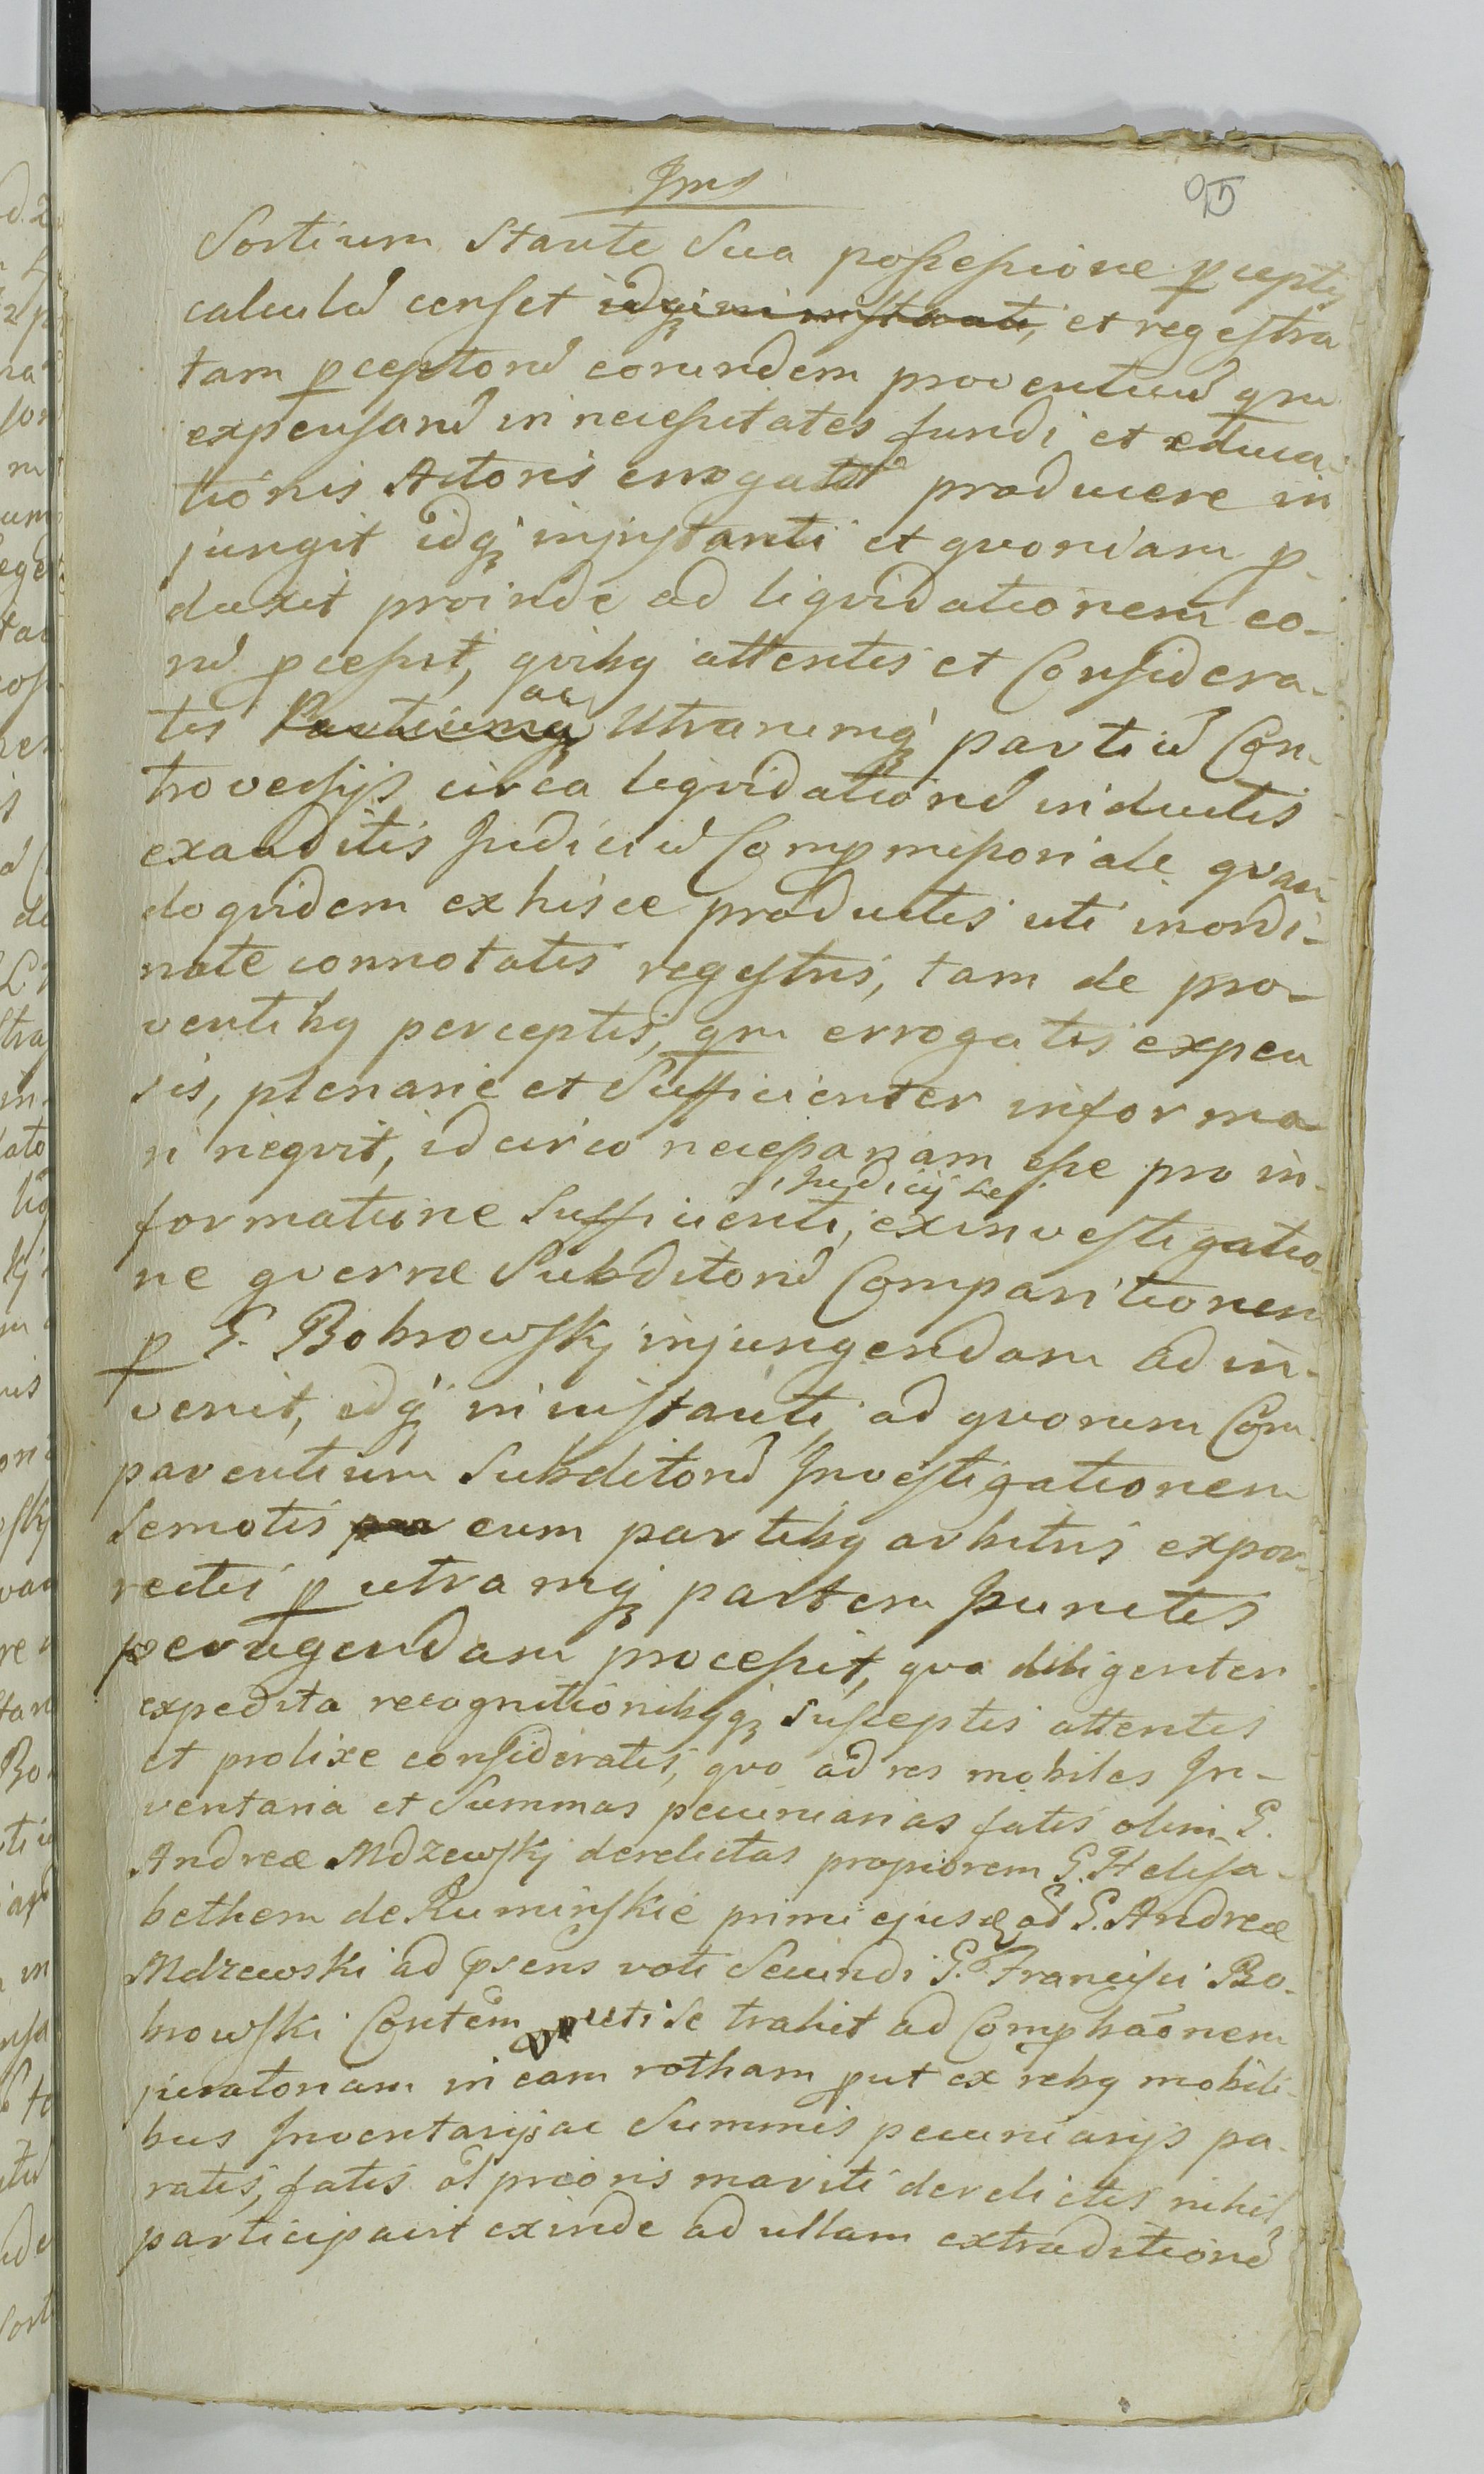 95
Sortium stante sua possessione pceptis
calculū censet idq in instanti, et regestra
tam pceptorū eorundem proventuū qm
expensarū in necessitates fundi et educa-
tionis Actoris errogatarū producere in
jungit idq in instanti et quoniam p
duxit proinde ad liquidationem eo-
rū pcessit, quibq attentis et Considera-
tis Partiumq ac Utrarumq partiū Con-
troversijs circa liquidationē inductis
exauditis Judiciū Compmissoriale quan
doquidem ex hisce productis uti inordi-
nate connotatis regestris, tam de pro-
ventibq perceptis, qm errogatis expen
sis, plenarie et Sufficienter informa
ri nequit, idcirco necessariam esse pro in-
formatione sufficienti, Judicij sui exinvestigatio-
ne quernæ Subditorū Comparitionem
p G. Bobrowskj injungendam ad in-
venit, idq in instanti, ad quorum Com
parentium Subditorū Investigationem
semotis pro cum partibq arbitris expor-
rectis p utramq partem Punctis
peragendam processit, qua diligenter
expedita recognitionibqq susceptis attentis
et prolixe consideratis, quo ad res mobiles In-
ventaria et Summas pecuniarias fatis olim G.
Andreæ Mdzewskj derelictas propriorem G. Helisa-
bethem de Ruminskie primi ejusd ol G. Andreæ
Mdzewski ad psens voti Secundi G. Francisci Bo-
browski Contēm uti se trahit ad Compbāonem
juratoriam in eam rotham put ex rebq mobili-
bus Inventarijs ac Summis pecuniarijs pa-
ratis, fatis ol prioris mariti derelictis nihil
participavit exinde ad ullam extraditionē